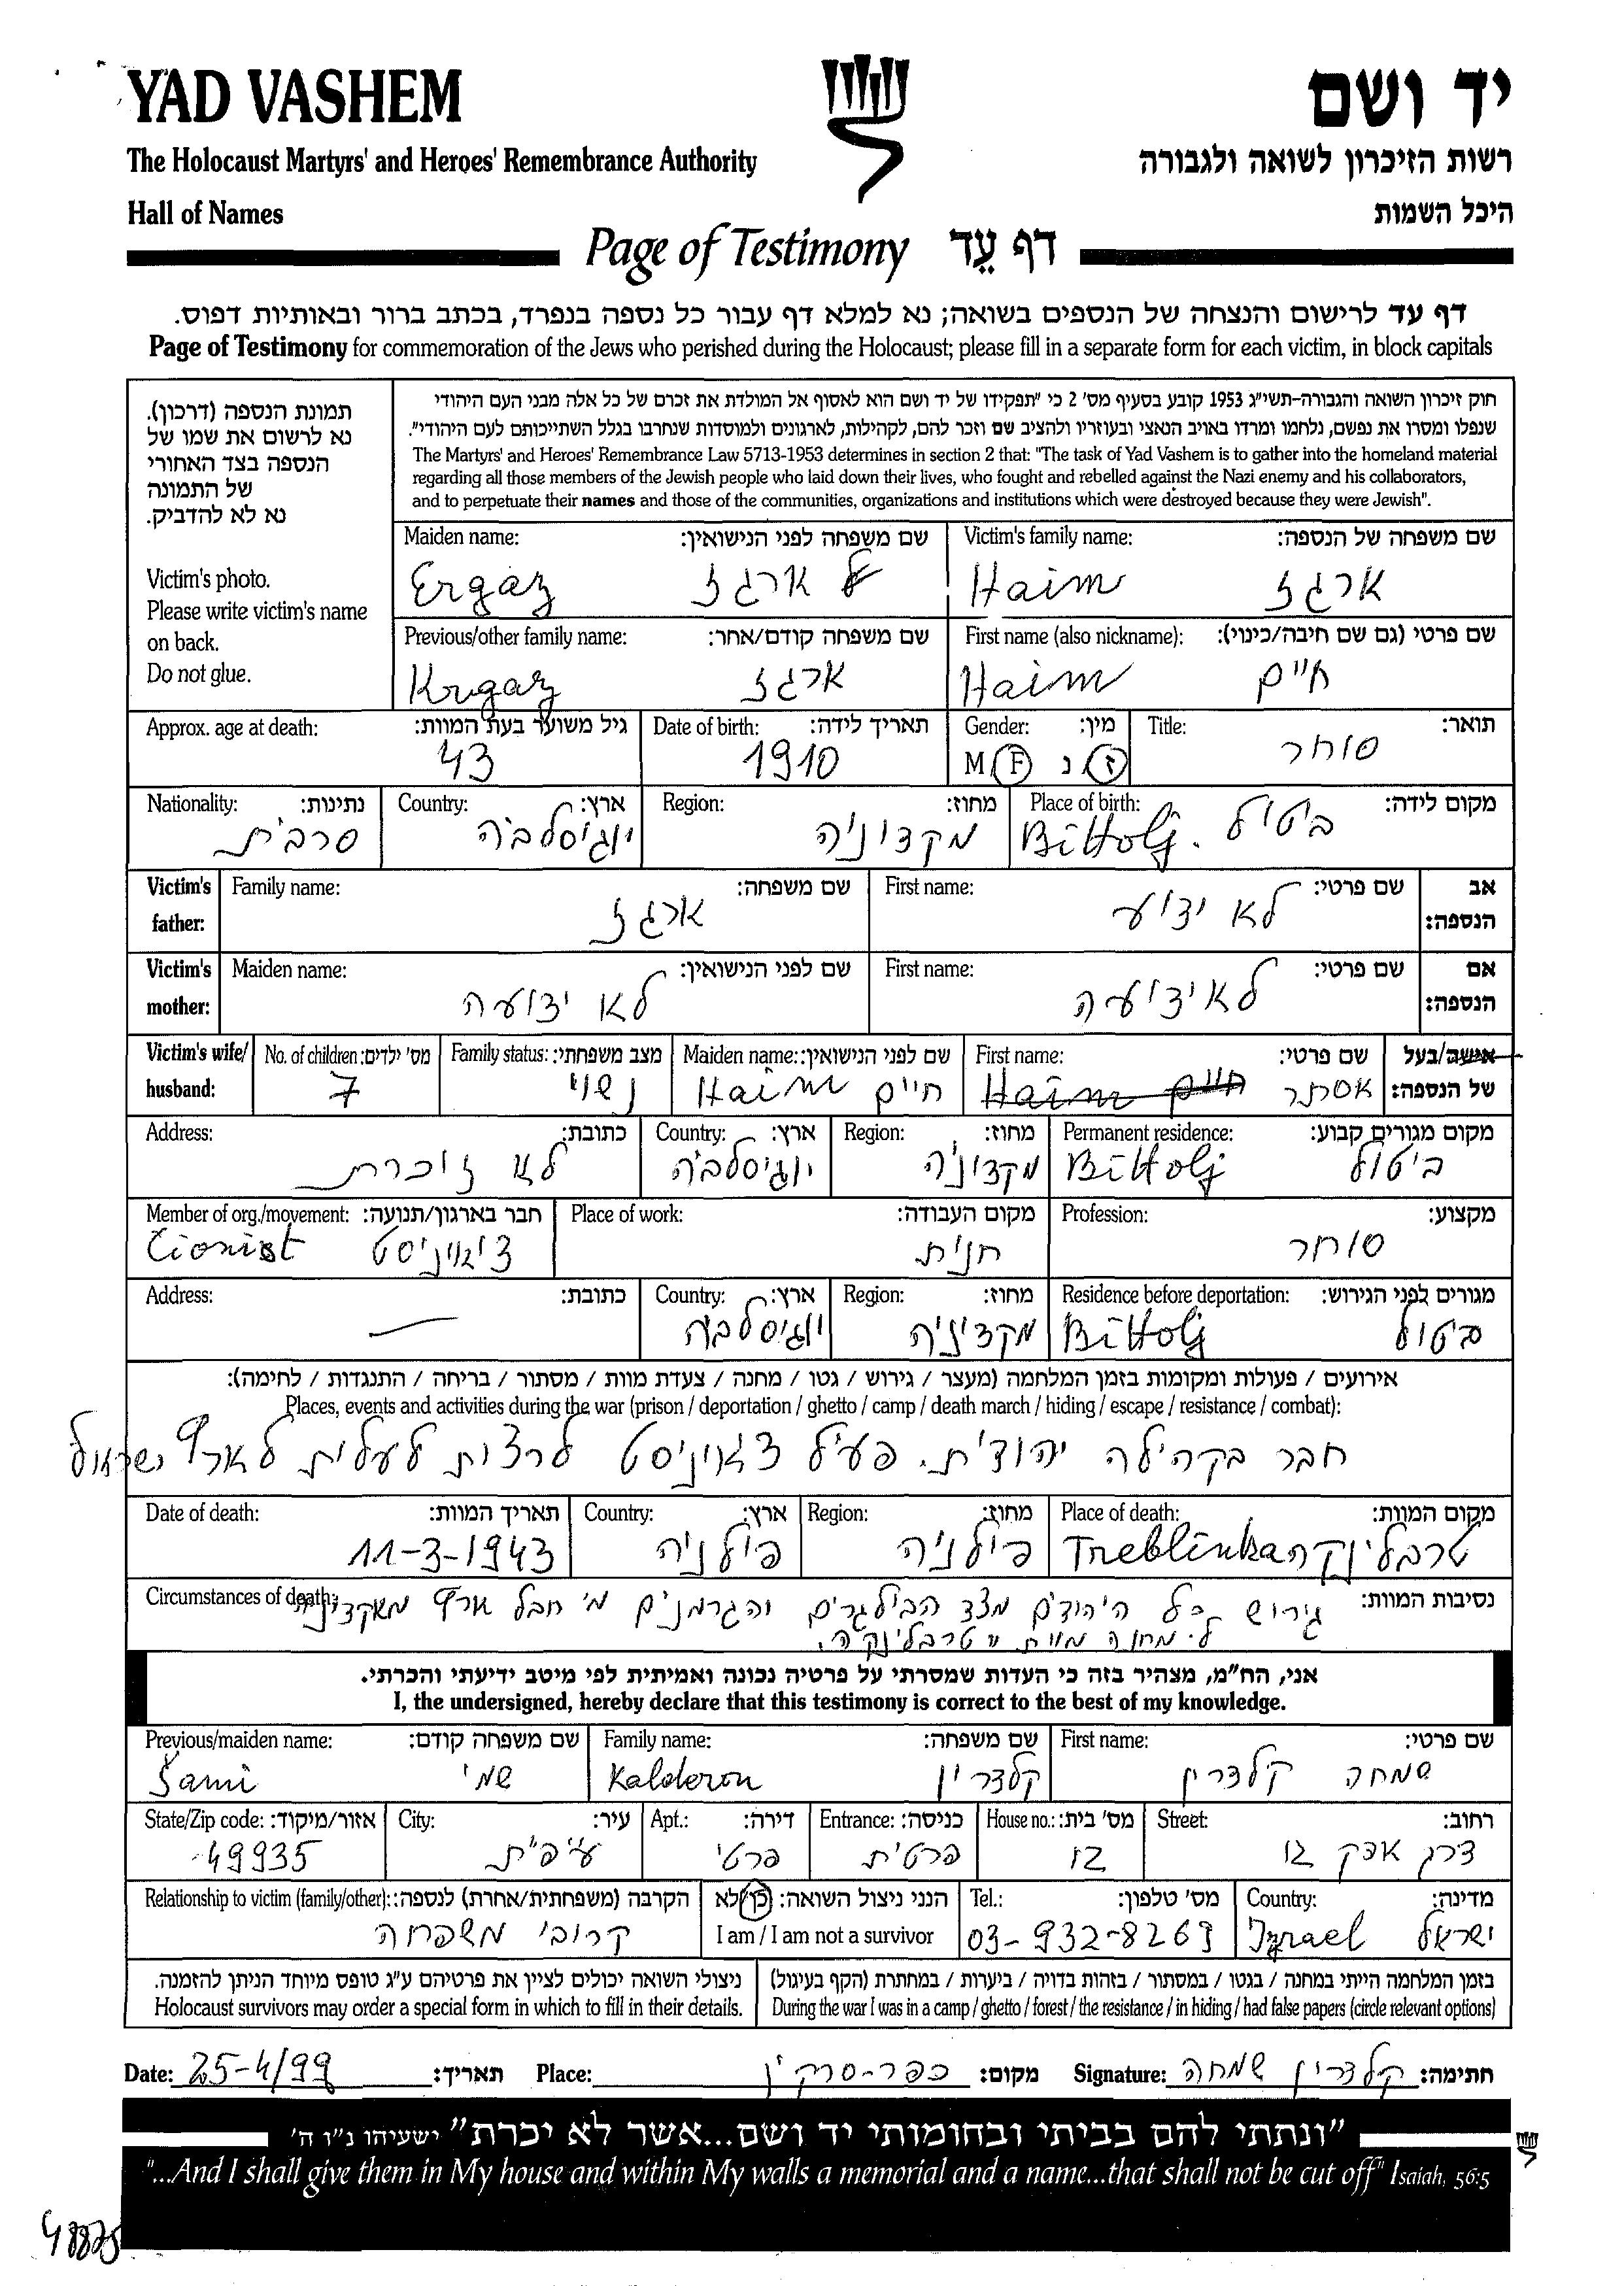 YAD VASHEM
יד ושם
The Holocaust Martyrs' and Heroes' Remembrance Authority
רשות הזיכרון לשואה ולגבורה
Hall of Names
היכל השמות
Page of Testimony דף עֵד
דף עד לרישום והנצחה של הנספים בשואה; נא למלא דף עבור כל נספה בנפרד, בכתב ברור ובאותיות דפוס.
Page of Testimony for commemoration of the Jews who perished during the Holocaust; please fill in a separate form for each victim, in block capitals
תמונת הנספה (דרכון).
נא לרשום את שמו של
הנספה בצד האחורי
של התמונה
נא לא להדביק.
Victim's photo.
Please write victim's name
on back.
Do not glue.
חוק זיכרון השואה והגבורה-תשי"ג 1953 קובע בסעיף מס' 2 כי "תפקידו של יד ושם הוא לאסוף אל המולדת את זכרם של כל אלה מבני העם היהודי
שנפלו ומסרו את נפשם, נלחמו ומרדו באויב הנאצי ובעוזריו ולהציב שם וזכר להם, לקהילות, לארגונים ולמוסדות שנחרבו בגלל השתייכותם לעם היהודי".
The Martyrs' and Heroes' Remembrance Law 5713-1953 determines in section 2 that: "The task of Yad Vashem is to gather into the homeland material
regarding all those members of the Jewish people who laid down their lives, who fought and rebelled against the Nazi enemy and his collaborators,
and to perpetuate their names and those of the communities, organizations and institutions which were destroyed because they were Jewish".
Maiden name: שם משפחה לפני הנישואין: Victim's family name: שם משפחה של הנספה:
Ergaz ארגז Haim ארגז
Previous/other family name: שם משפחה קודם/אחר: First name (also nickname): שם פרטי (גם שם חיבה/כינוי):
Krgaz ארגז Haim חיים
Approx. age at death: גיל משוער בעת המוות: Date of birth: תאריך לידה: Gender: מין: Title: תואר:
43 1910 M F ז נ סוחר
Nationality: נתינות: Country: ארץ: Region: מחוז: Place of birth: מקום לידה:
סרבית יוגיסלביה מקדוניה Bittolj. ביטול
Victim's father: Family name: שם משפחה: First name: שם פרטי: אב הנספה:
ארגז לא ידוע
Victim's mother: Maiden name: שם לפני הנישואין: First name: שם פרטי: אם הנספה:
לא ידועה לא ידועה
Victim's wife/ husband: No. of children: מס' ילדים: Family status: מצב משפחתי: Maiden name: שם לפני הנישואין: First name: שם פרטי: אישה/בעל של הנספה:
7 נשוי Haim חיים Haim חיים אסתר
Address: כתובת: Country: ארץ: Region: מחוז: Permanent residence: מקום מגורים קבוע:
לא זוכרת יוגיסלביה מקדוניה Bittolj ביטול
Member of org./movement: חבר בארגון/תנועה: Place of work: מקום העבודה: Profession: מקצוע:
Cionist ציאוניסט חנית סוחר
Address: כתובת: Country: ארץ: Region: מחוז: Residence before deportation: מגורים לפני הגירוש:
— יוגיסלביה מקדוניה Bittolj ביטול
אירועים / פעולות ומקומות בזמן המלחמה (מעצר / גירוש / גטו / מחנה / צעדת מוות / מסתור / בריחה / התנגדות / לחימה):
Places, events and activities during the war (prison / deportation / ghetto / camp / death march / hiding / escape / resistance / combat):
חבר בקהילה יהודית. פעיל ציאוניסט לרצות לעלות לארץ ישראל
Date of death: תאריך המוות: Country: ארץ: Region: מחוז: Place of death: מקום המוות:
11-3-1943 פולניה פולניה Treblinka טרבלינקה
Circumstances of death: נסיבות המוות:
גירוש כל היהודים מצד הבולגרים והגרמנים מ' חבל ארץ מקדוניה
ל. מחנה מוות "טרבלינקה.
אני, הח"מ, מצהיר בזה כי העדות שמסרתי על פרטיה נכונה ואמיתית לפי מיטב ידיעתי והכרתי.
I, the undersigned, hereby declare that this testimony is correct to the best of my knowledge.
Previous/maiden name: שם משפחה קודם: Family name: שם משפחה: First name: שם פרטי:
Sami שמי Kalderon קלדרון שמחה קלדרון
State/Zip code: אזור/מיקוד: City: עיר: Apt.: דירה: Entrance: כניסה: House no.: מס' בית: Street: רחוב:
49935 פרטי פרטית 12 אפק 12
Relationship to victim (family/other): הקרבה (משפחתית/אחרת) לנספה: הנני ניצול השואה: כן/לא Tel.: מס' טלפון: Country: מדינה:
קרובי משפחה I am / I am not a survivor 03-932-8269 Izrael ישראל
ניצולי השואה יכולים לציין את פרטיהם ע"ג טופס מיוחד הניתן להזמנה. בזמן המלחמה הייתי במחנה / בגטו / במסתור / בזהות בדויה / ביערות / במחתרת (הקף בעיגול)
Holocaust survivors may order a special form in which to fill in their details. During the war I was in a camp / ghetto / forest / the resistance / in hiding / had false papers (circle relevant options)
Date: 25-4/99 תאריך: Place: כפר-סרקין מקום: Signature: קלדרון שמחה חתימה:
"ונתתי להם בביתי ובחומותי יד ושם...אשר לא יכרת" ישעיהו נ"ו ה'
"...And I shall give them in My house and within My walls a memorial and a name...that shall not be cut off" Isaiah, 56:5
48875